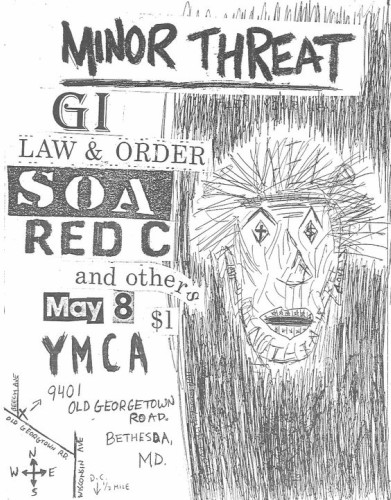 MINOR THREAT
GI
LAW & ORDER
SOA
RED C
and others
May 8 $1
YMCA
9401
OLD GEORGETOWN
ROAD.
BETHESDA,
MD.
BEECH AVE
X
OLD GEORGTOWN RD.
WISCONSIN AVE
N
W E
S
D.C.
↓ 1/2 MILE